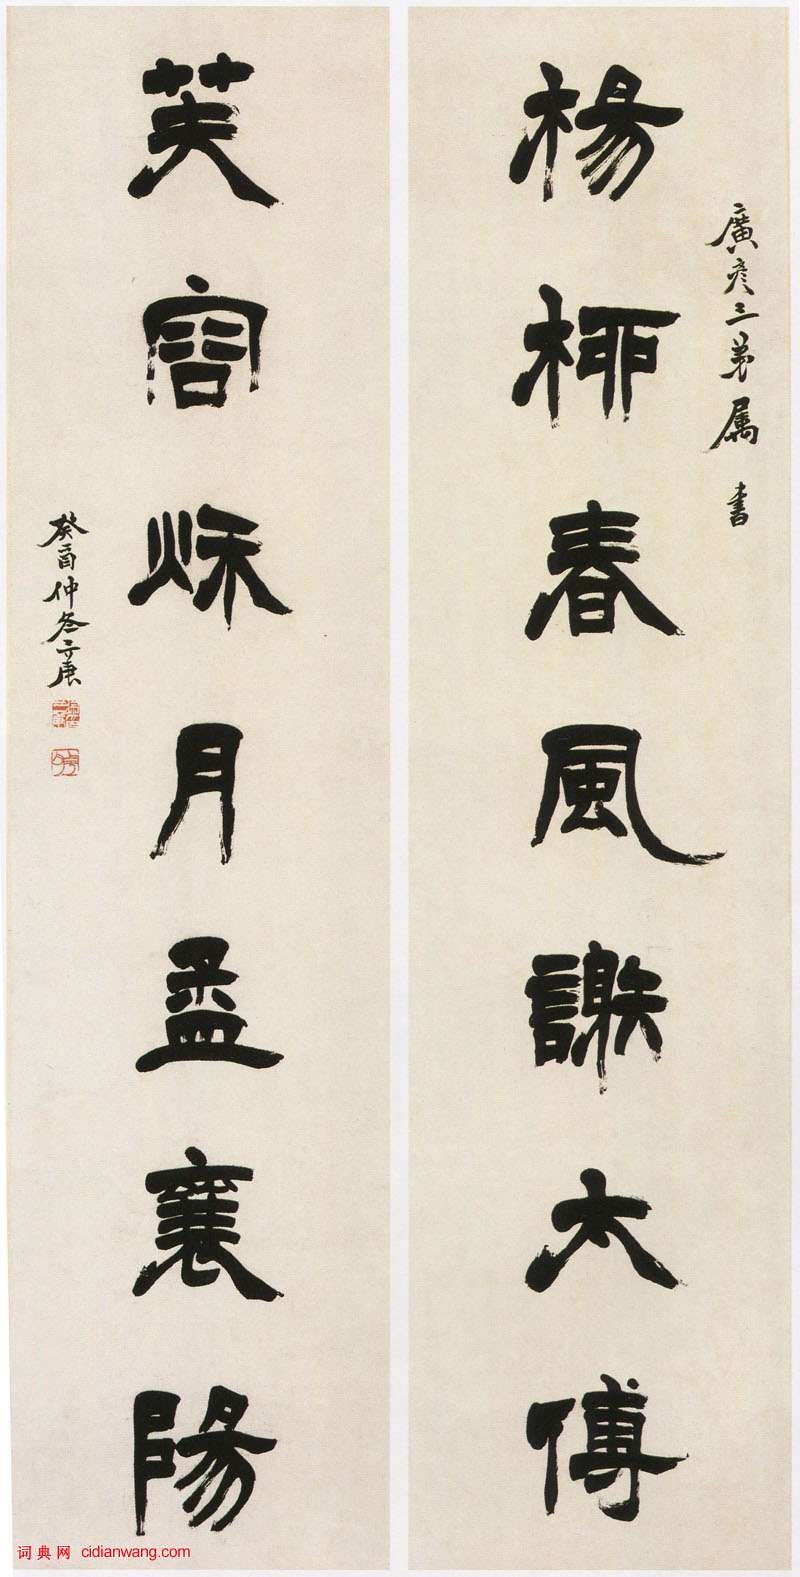 廣彥三弟属書
楊桺春風謝太傅
芙容秌月孟襄陽
癸酉仲冬三庚
词典网 cidianwang.com